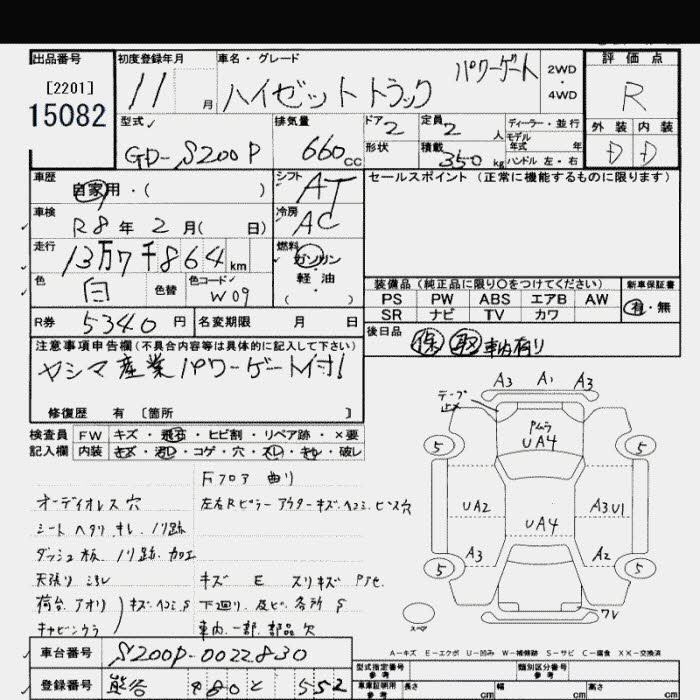 出品番号
[2201]
15082
初度登録年月
11 月
車名・グレード
ハイゼットトラック パワーゲート
2WD
4WD
評価点
R
外装 内装
D D
型式
GD-S200P
排気量
660 CC
ドア 2
形状
定員 2 人
積載 350 kg
ディーラー・並行
モデル
年式 年
ハンドル 左・右
車歴
自家用・( )
シフト
AT
セールスポイント (正常に機能するものに限ります)
車検
R8年 2月( 日)
冷房
AC
走行
13万7千864 km
燃料
ガソリン
軽・油
( )
色
白 色替
色コード
W09
装備品(純正品に限り○をつけてください) 新車保証書
PS PW ABS エアB AW
SR ナビ TV カワ
有・無
R券 5340円 名変期限 月 日
後日品
保 取 車内有り
注意事項申告欄(不具合内容等は具体的に記入して下さい)
ヤシマ産業パワーゲート付!
修復歴 有 〔箇所 〕
検査員 FW キズ・飛石・ヒビ割・リペア跡・×要
記入欄 内装 キズ・汚D・コゲ・穴・スレ・キレ・破レ
Fフロア 曲り
オーディオレス 穴
左右Rピラー アウターキズ ヘコミ ビス穴
シート ヘタリ キレ ノリ跡
ダッシュ板 ノリ跡 加工
天張り
キズ E スリキズ
荷台 アオリ
キャビンウラ
キズ ヘコミ S
下廻り 及ビ 各所 S
車内 一部 部品 欠
A3 A1 A3
テープ
止メ
Pムラ
UA4
5 5
UA2 A3U1
UA4
A3 A2
5 5
スペア
A-キズ E-エクボ U-凹み W-補修跡 S-サビ C-腐食 XX-交換済
車台番号 S200P-0022830
登録番号 熊谷 480 と 552
型式指定番号
参考
類別区分番号
参考
車庫証明用
参考
長さ cm
幅 cm
高さ cm